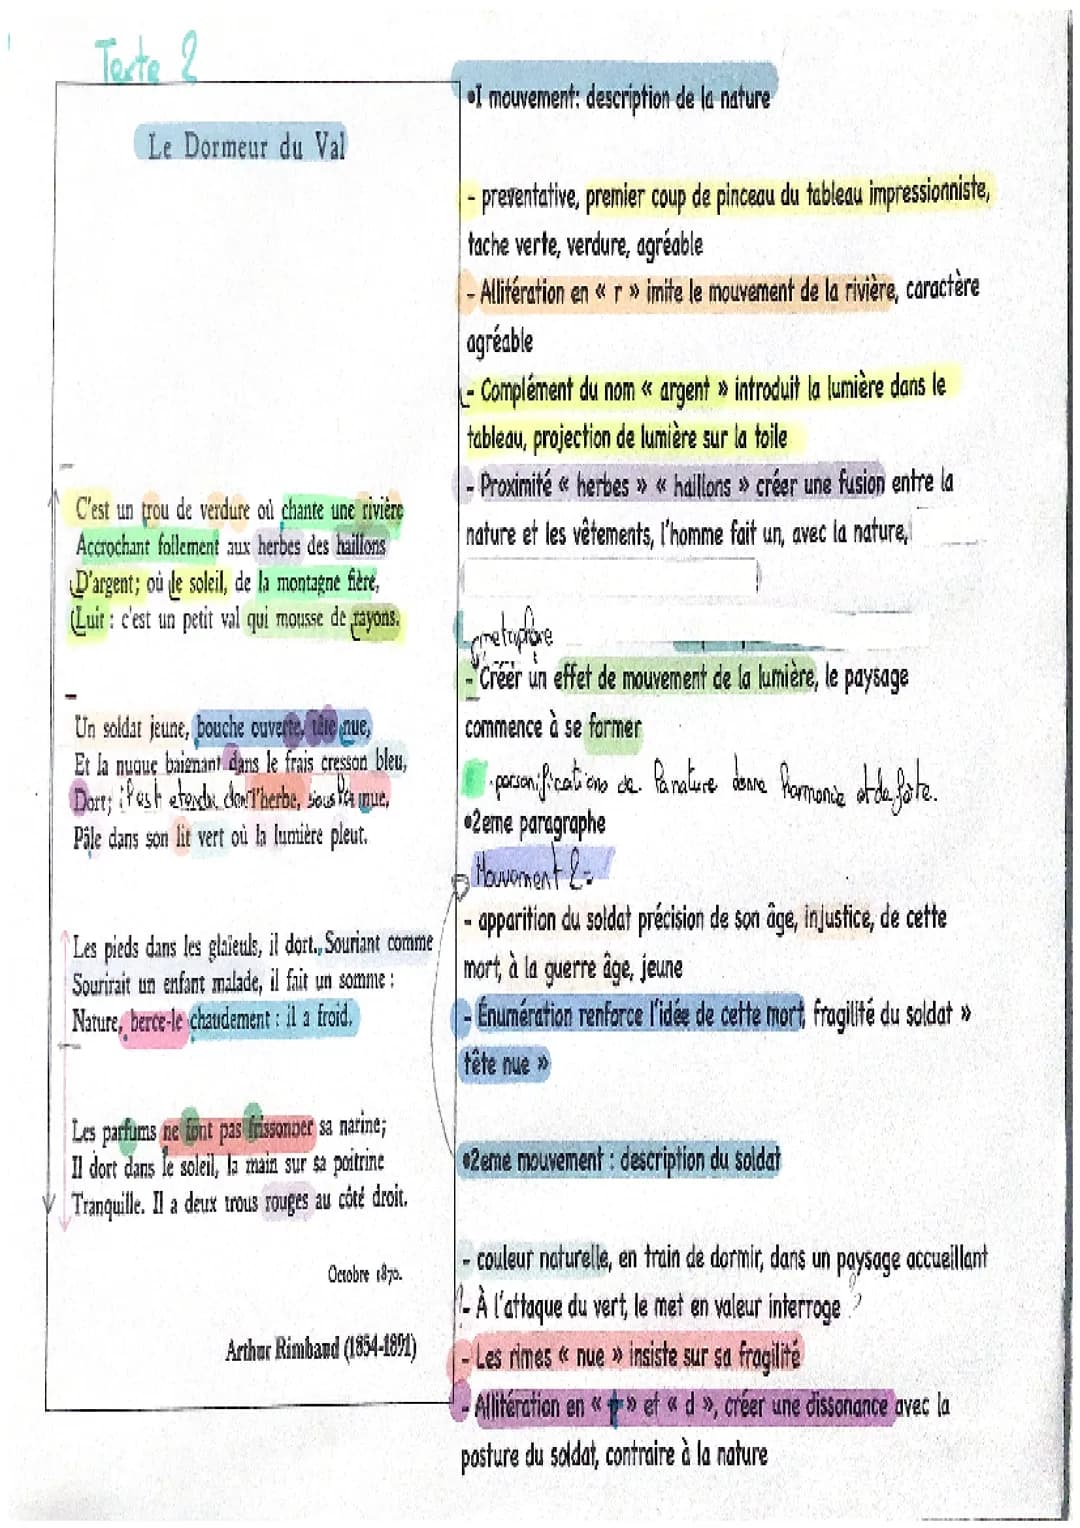 Texte 2
Le Dormeur du Val
C'est un trou de verdure où chante une rivière
Accrochant follement aux herbes des haillons
D'argent; où le soleil, de la montagne fière,
Luit : c'est un petit val qui mousse de rayons.
Un soldat jeune, bouche ouverte, tête nue,
Et la nuque baignant dans le frais cresson bleu,
Dort; il est etendu dans l'herbe, sous la nue,
Pâle dans son lit vert où la lumière pleut.
Les pieds dans les glaïeuls, il dort. Souriant comme
Sourirait un enfant malade, il fait un somme :
Nature, berce-le chaudement : il a froid.
Les parfums ne font pas frissonner sa narine;
Il dort dans le soleil, la main sur sa poitrine
Tranquille. Il a deux trous rouges au côté droit.
Octobre 1870.
Arthur Rimbaud (1854-1891)
•I mouvement: description de la nature
- preventative, premier coup de pinceau du tableau impressionniste,
tache verte, verdure, agréable
- Allitération en « r » imite le mouvement de la rivière, caractère
agréable
- Complément du nom « argent » introduit la lumière dans le
tableau, projection de lumière sur la toile
- Proximité « herbes » « haillons » créer une fusion entre la
nature et les vêtements, l'homme fait un, avec la nature,
metaphore
- Créer un effet de mouvement de la lumière, le paysage
commence à se former
- personifications de la nature donne harmonie et de fête.
•2eme paragraphe
Mouvement 2=
- apparition du soldat précision de son âge, injustice, de cette
mort, à la guerre âge, jeune
- Énumération renforce l'idée de cette mort, fragilité du soldat »
tête nue »
•2eme mouvement : description du soldat
- couleur naturelle, en train de dormir, dans un paysage accueillant
?- À l'attaque du vert, le met en valeur interroge ?
- Les rimes « nue » insiste sur sa fragilité
- Allitération en « t » et « d », créer une dissonance avec la
posture du soldat, contraire à la nature